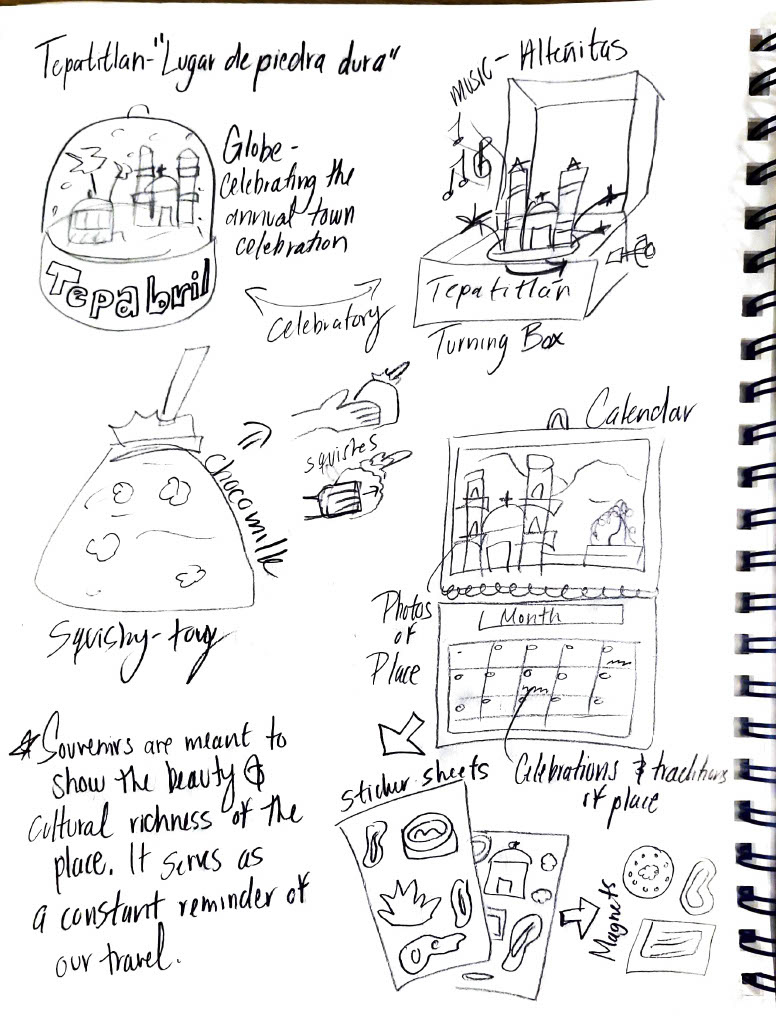 Tepatitlan-"Lugar de piedra dura"
MUSIC - Alteñitas
Globe -
celebrating the
annual town
celebration
Tepabril
celebratory
Tepatitlán
Turning Box
chocomilk
squishes
Squishy-toy
Calendar
Photos
of
Place
Month
Celebrations & traditions
of place
Souvenirs are meant to
show the beauty &
cultural richness of the
place. It serves as
a constant reminder of
our travel.
sticker sheets
Magnets